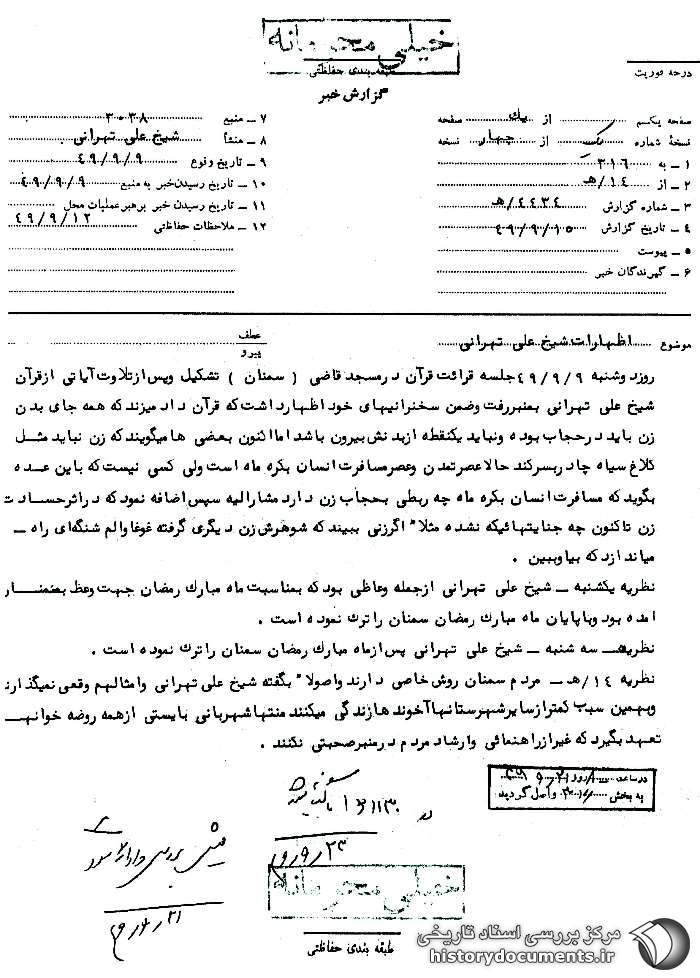 خیلی محرمانه
طبقه بندی حفاظتی
درجه فوریت
گزارش خبر
صفحه یکم از یک صفحه
نسخهٔ شماره یک از چهار نسخه
۱ ــ به ۳۱۶
۲ ــ از ۱۴/ هـ
۳ ــ شماره گزارش ۴۴۳۴/ هـ
۴ ــ تاریخ گزارش ۴۹/۹/۱۰
۵ ــ پیوست
۶ ــ گیرندگان خبر
۷ ــ منبع ۳۰۳۸
۸ ــ منشأ شیخ علی تهرانی
۹ ــ تاریخ وقوع ۴۹/۹/۹
۱۰ ــ تاریخ رسیدن خبر به منبع ۴۹/۹/۹
۱۱ ــ تاریخ رسیدن خبر برهبر عملیات محل
۱۲ ــ ملاحظات حفاظتی ۴۹/۹/۱۲
موضوع اظهارات شیخ علی تهرانی
عطف
پیرو
روزدوشنبه ۴۹/۹/۹ جلسه قرائت قرآن درمسجد قاضی ( سمنان ) تشکیل وپس ازتلاوت آیاتی ازقرآن
شیخ علی تهرانی بمنبررفت وضمن سخنرانیهای خود اظهارداشت که قرآن داد میزند که همه جای بدن
زن باید درحجاب بوده ونباید یکنقطه ازبدنش بیرون باشد اما اکنون بعضی ها میگویند که زن نباید مثل
کلاغ سیاه چادربسرکند حالا عصرتمدن وعصرمسافرت انسان بکره ماه است ولی کسی نیست که باین عده
بگوید که مسافرت انسان بکره ماه چه ربطی بحجاب زن دارد مشارالیه سپس اضافه نمود که دراثرحسادت
زن تاکنون چه جنایتهائیکه نشده مثلا" اگرزنی ببیند که شوهرش زن دیگری گرفته غوغا والم شنگه‌ای راه ــ
میاندازد که بیا وببین .
نظریه یکشنبه ــ شیخ علی تهرانی ازجمله وعاظی بود که بمناسبت ماه مبارك رمضان جهت وعظ بسمنــار
امده بود وباپایان ماه مبارك رمضان سمنان را ترك نموده است .
نظریهــ سه شنبه ــ شیخ علی تهرانی پس ازماه مبارك رمضان سمنان را ترك نموده است .
نظریه ۱۴/هـ ــ مردم سمنان روش خاصی دارند واصولا" بگفته شیخ علی تهرانی وامثالهم وقعی نمیگذارند
وبهمین سبب کمترازسایرشهرستانها آخوندها زندگی میکنند منتها شهربانی بایستی ازهمه روضه خوانهــ
تعهد بگیرد که غیرازراهنمائی وارشاد مردم درمنبرصحبتی نکنند .
درساعت روز
به بخش واصل گردید
خیلی محرمانه
طبقه بندی حفاظتی
مرکز بررسی اسناد تاریخی
historydocuments.ir